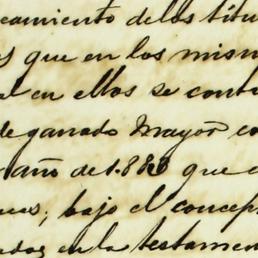 camiento de los títu
s que en los mism
el en ellos se contu
de ganado Mayor co
año de 1.880 que
ues; bajo el concep
en la testamen